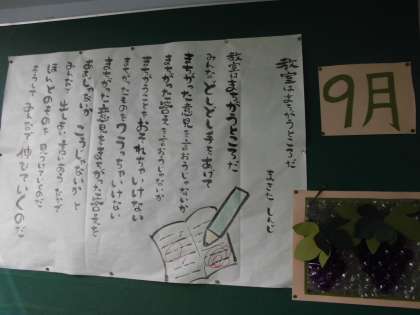 教室はまちがうところだ
まきた しんじ
教室はまちがうところだ
みんなどしどし手をあげて
まちがった意見を言おうじゃないか
まちがった答えを言おうじゃないか
まちがうことをおそれちゃいけない
まちがったものをワラっちゃいけない
まちがった意見をまちがった答えを
ああじゃないか こうじゃないかと
みんなで出しあい言い合うなかで
ほんとのものを見つけていくのだ
そうして みんなで伸びていくのだ
9月